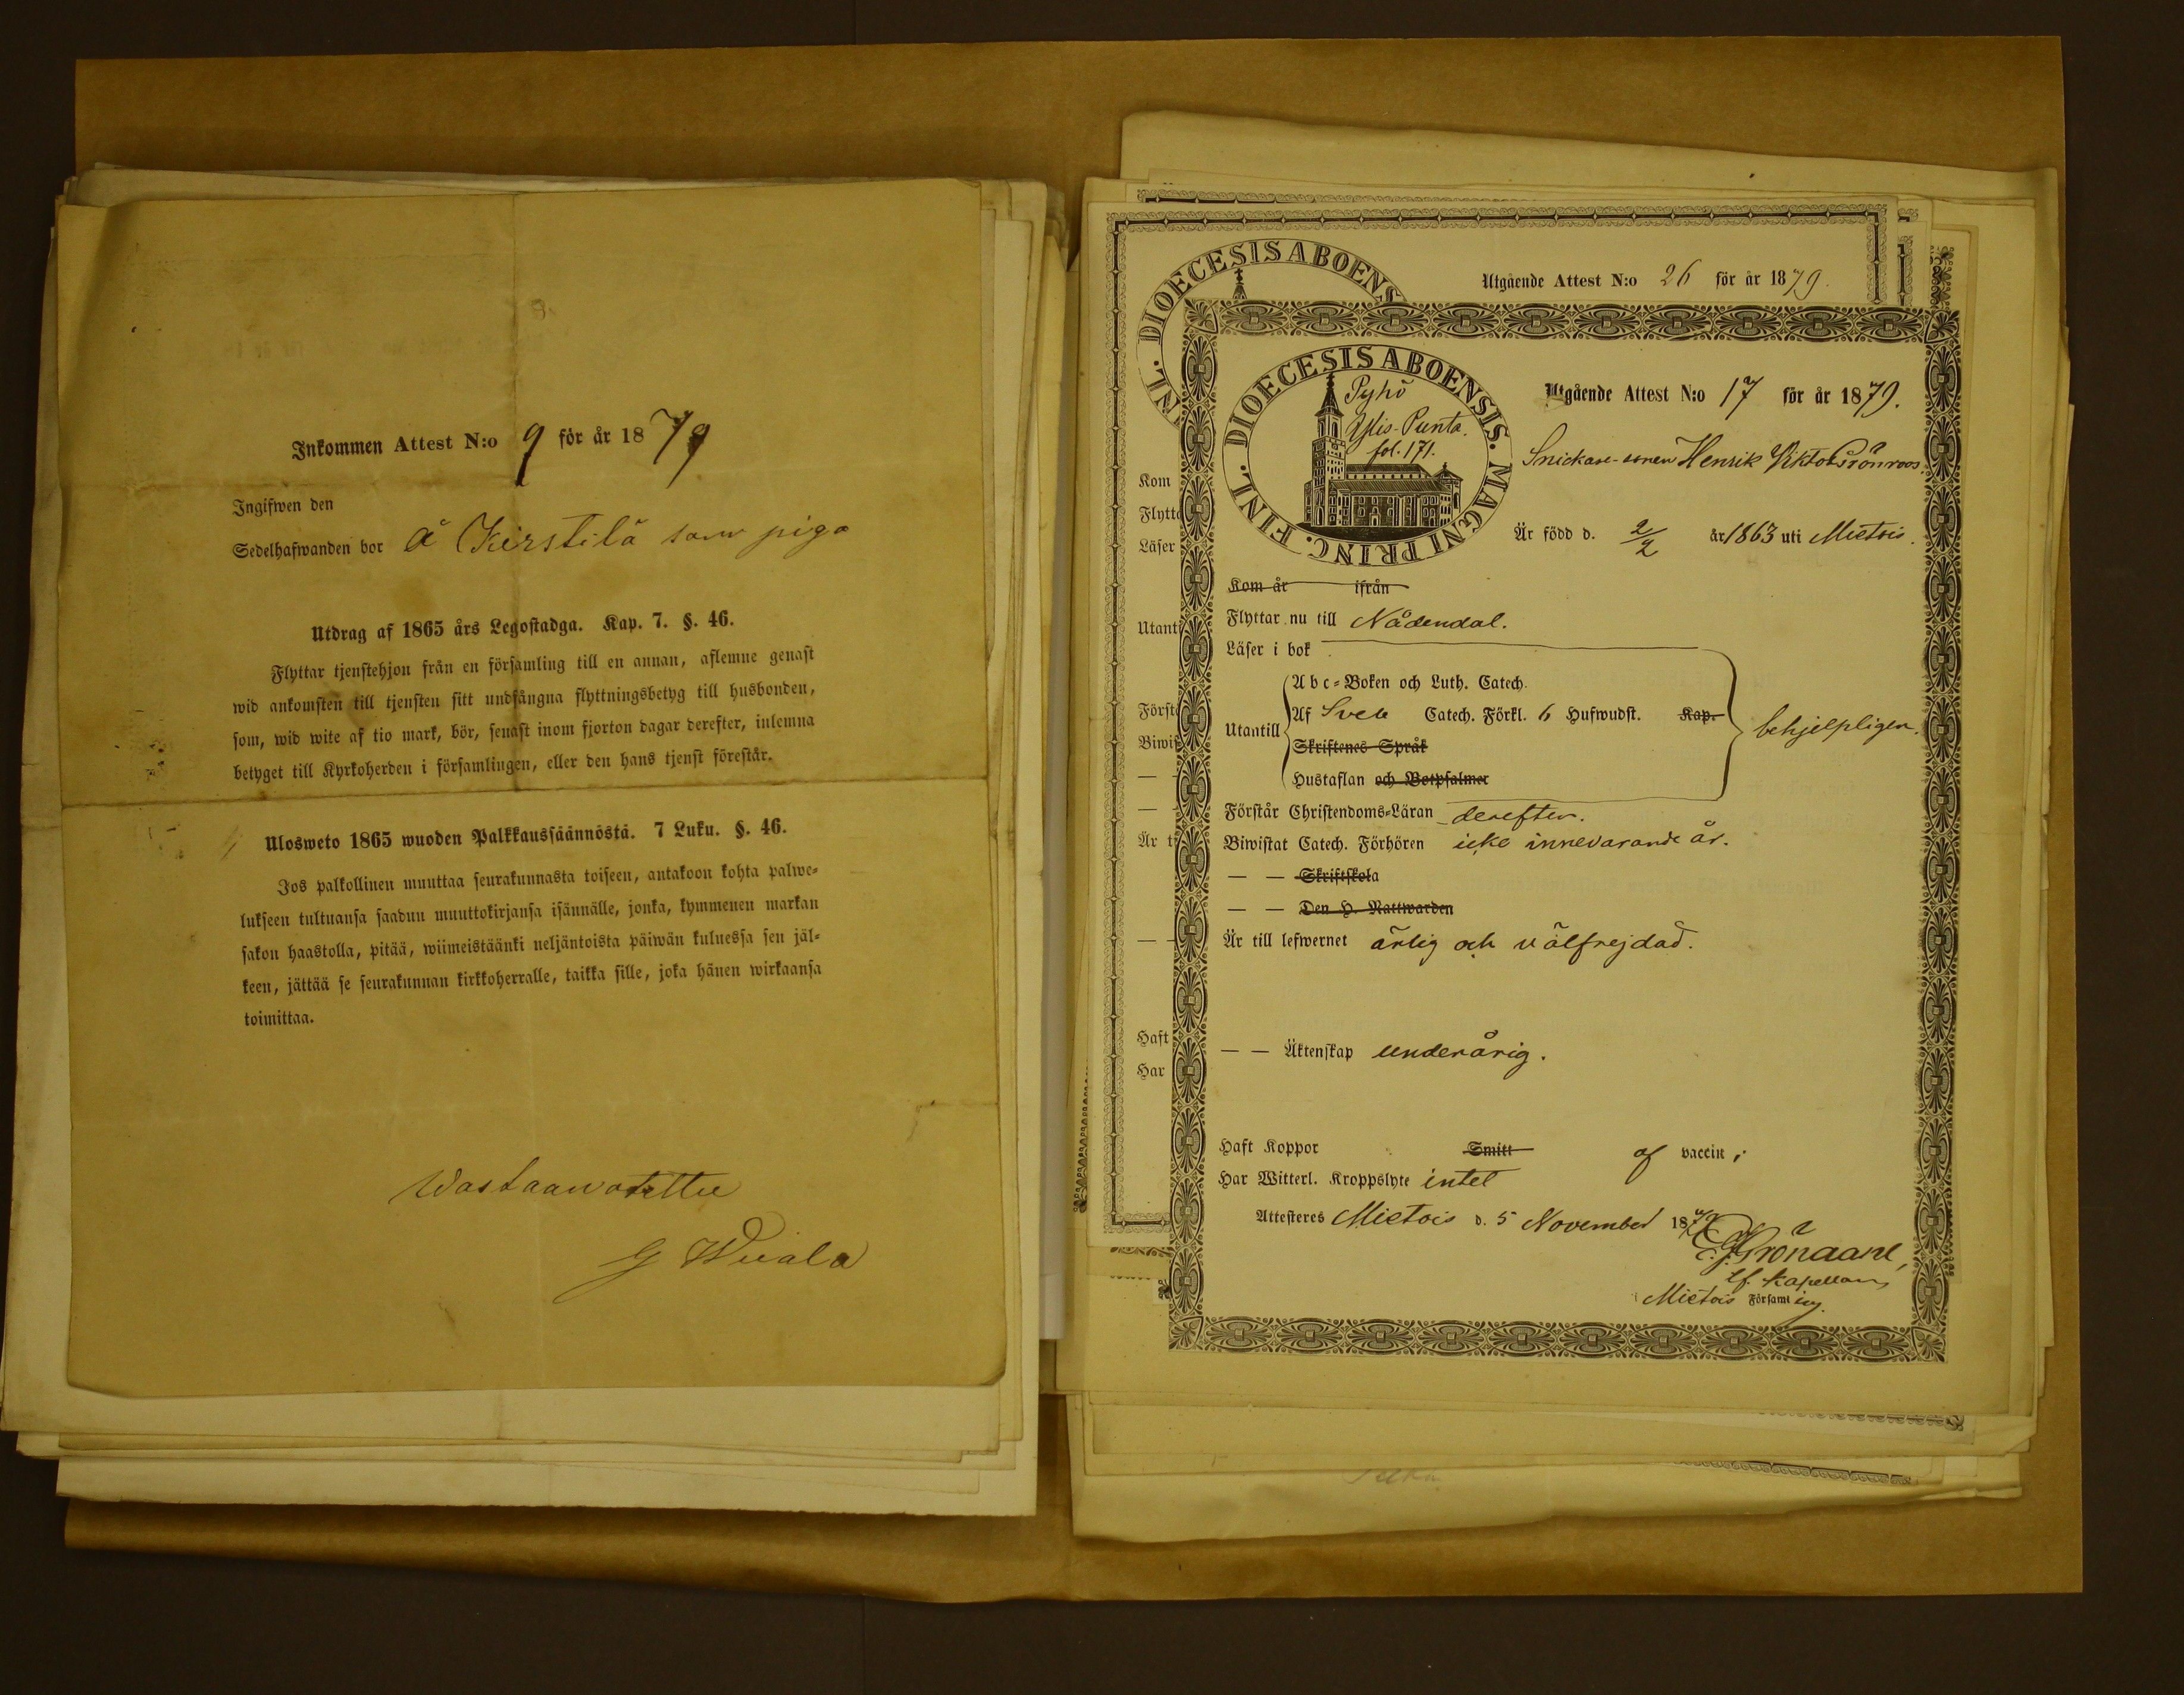 Inkommen Attest N:o 9 för år 1879
Ingifwen den
Sedelhafwanden bor å Kirstilä som piga
Utdrag af 1865 års Legostadga. Kap. 7. §. 46.
Flyttar tjenstehjon från en församling till en annan, aflemne genast
wid ankomsten till tjensten sitt undfångna flyttningsbetyg till husbonden,
som, wid wite af tio mark, bör, senast inom fjorton dagar derefter, inlemna
betyget till Kyrkoherden i församlingen, eller den hans tjenst förestår.
Ulosweto 1865 wuoden Palkkaussäännöstä. 7 Luku. §. 46.
Jos palkollinen muuttaa seurakunnasta toiseen, antakoon kohta palwe-
lukseen tultuansa saadun muuttokirjansa isännälle, jonka, kymmenen markan
sakon haastolla, pitää, wiimeistäänki neljäntoista päiwän kuluessa sen jäl-
keen, jättää se seurakunnan kirkkoherralle, taikka sille, joka hänen wirkaansa
toimittaa.
Wastaanotettu
G Wuala
NL. DIOECESIS ABOENS
Utgående Attest N:o 26 för år 1879.
Kom
Flytta
Läser
Utanti
Först
Biwis
Är t
Haft
Har
DIOECESIS ABOENSIS. MAGNI PRINC. FINL.
Pyhö
Ylis-Punta.
fol. 171.
Utgående Attest N:o 17 för år 1879.
Snickare-sonen Henrik Viktor Grönroos.
Är född d. 2/2 år 1863 uti Mietois.
Kom år ifrån
Flyttar nu till Nådendal.
Läser i bok
Utantill
Abc-Boken och Luth. Catech.
Af Sveb Catech. Förkl. 6 Hufwudst. Kap.
Skriftenes Språk
Hustaflan och Botpsalmer
behjelpligen.
Förstår Christendoms-Läran derefter.
Biwistat Catech. Förhören icke innevarande år.
— — Skriftskola
— — Den H. Nattwarden
Är till lefwernet ärlig och välfrejdad.
— — Äktenskap underårig.
Haft Koppor Smitt af vaccin.
Har Witterl. Kroppslyte intet
Attesteres Mietois d. 5 November 1879
Grönaare,
tf. Kapellan
i Mietois Församling.